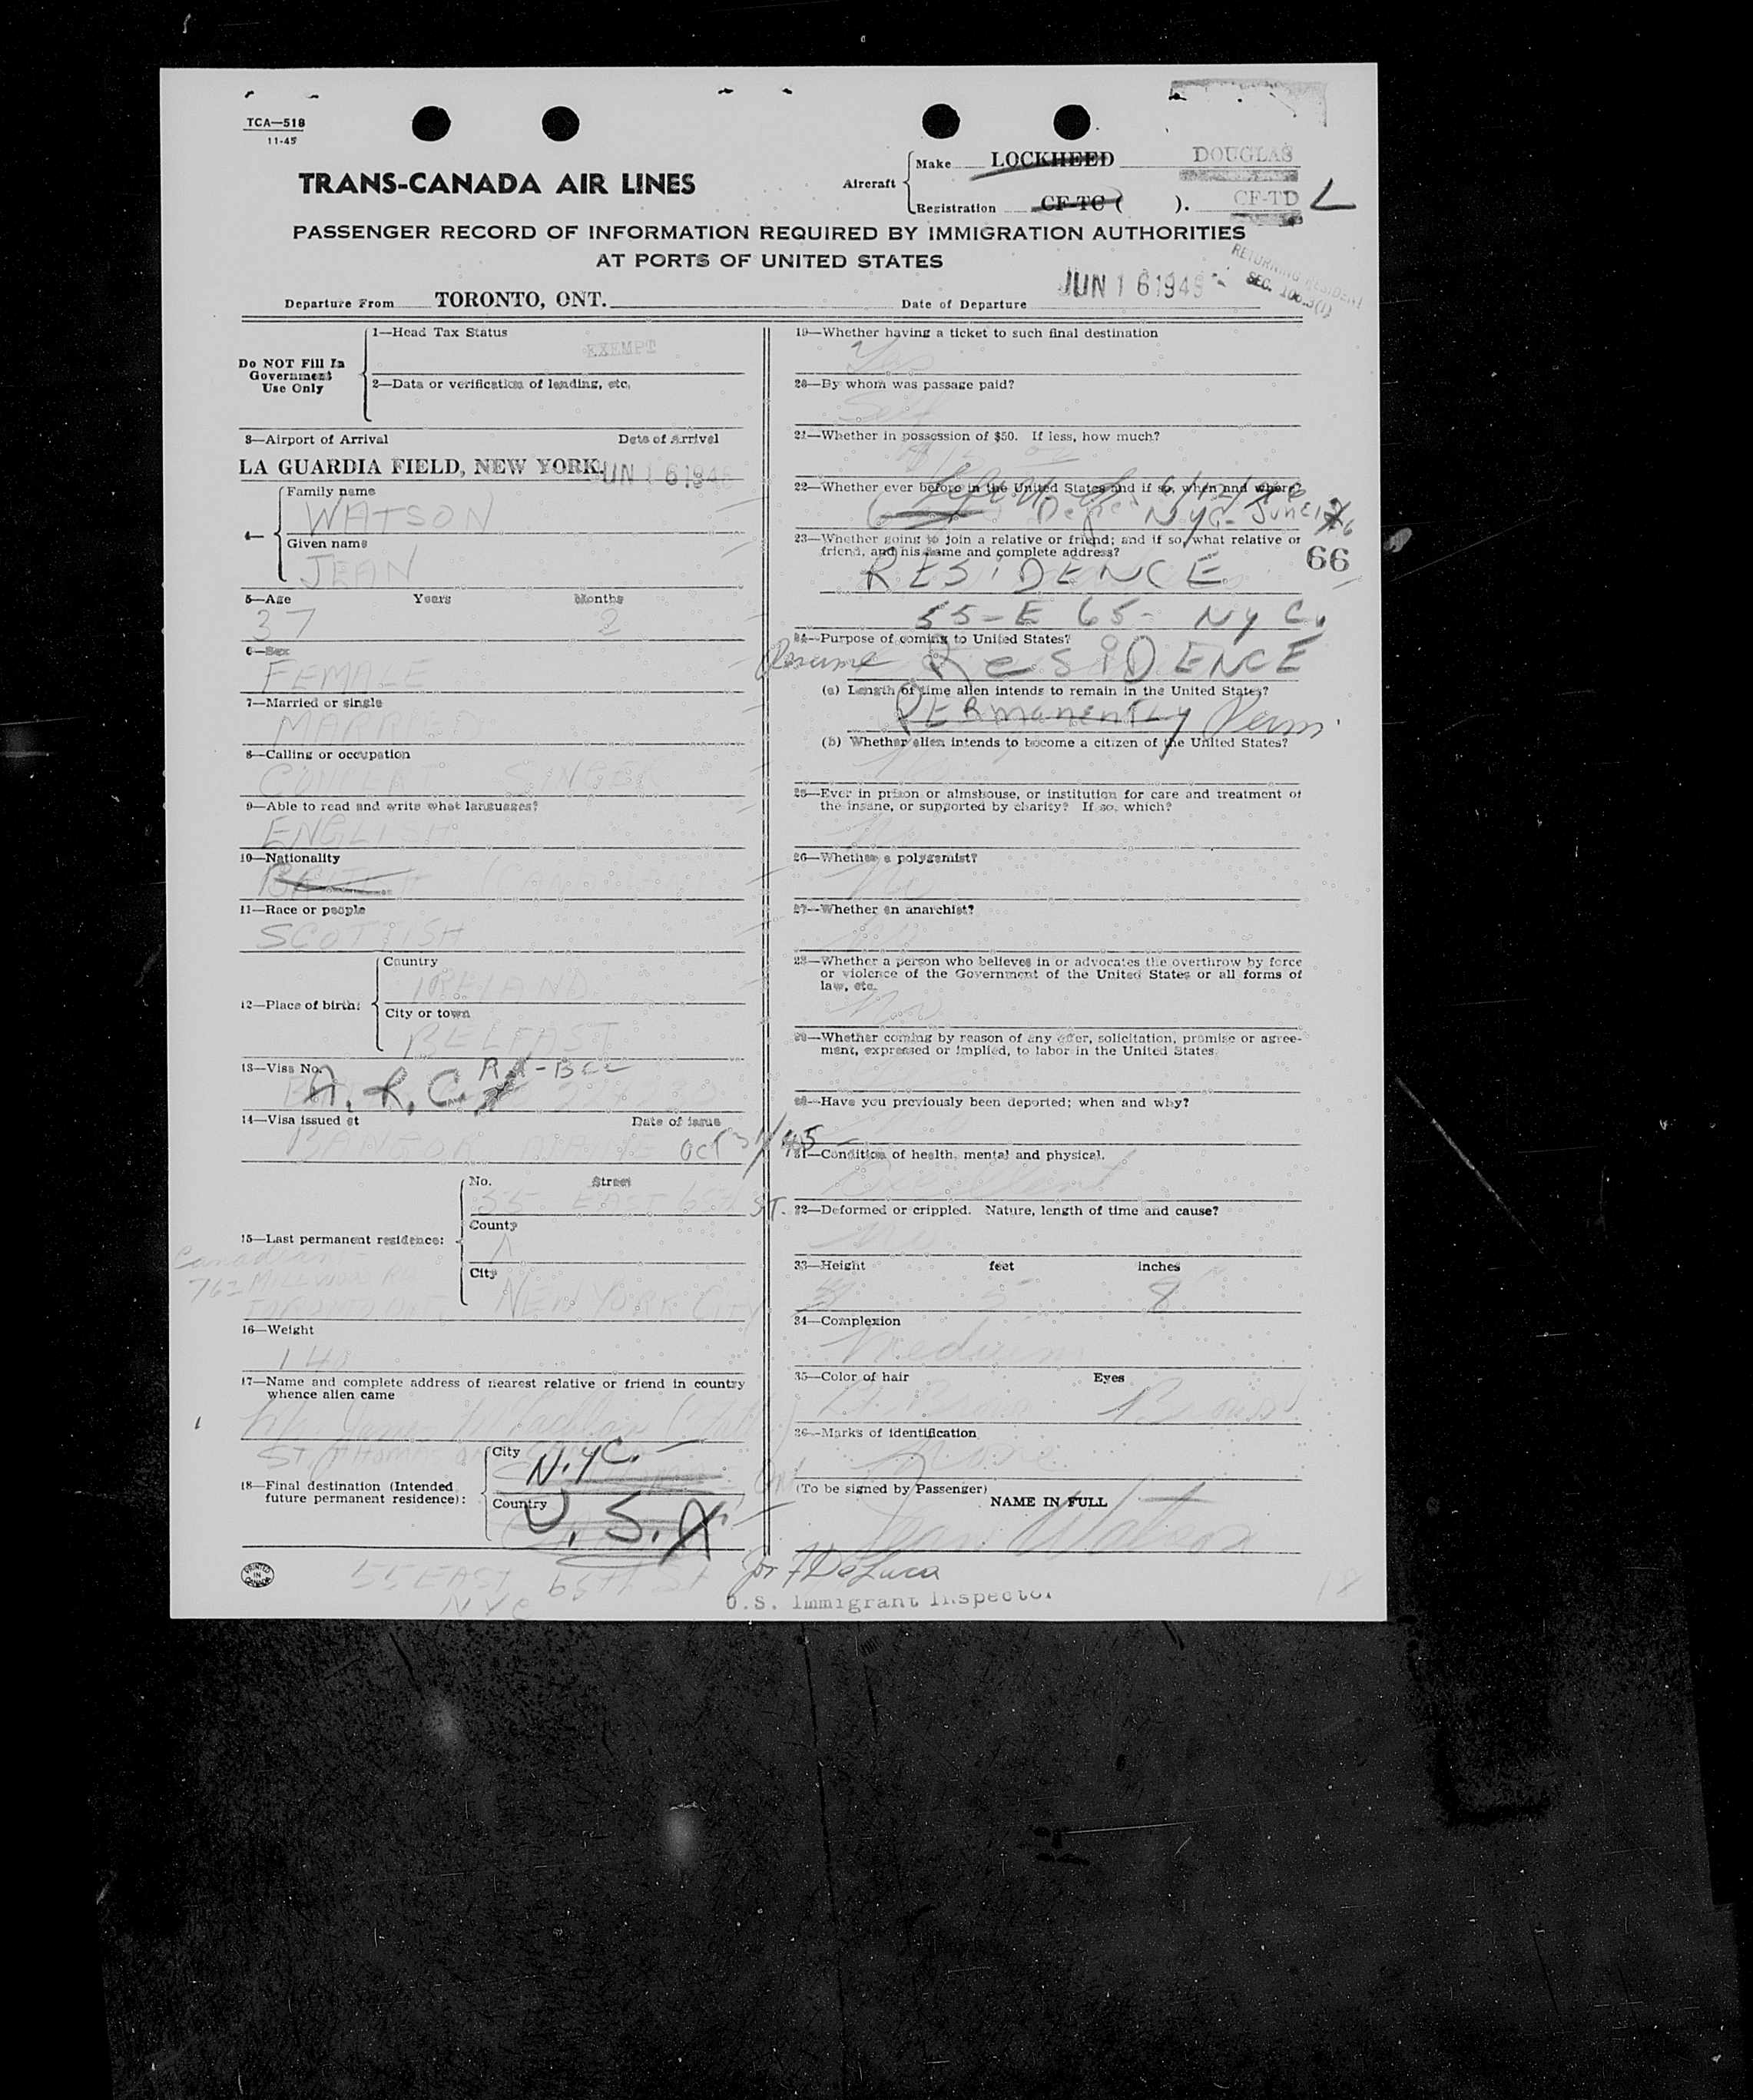 TCA—518
11-45
TRANS-CANADA AIR LINES
Aircraft
Make LOCKHEED DOUGLAS
Registration CF-TC ( ). CF-TD L
PASSENGER RECORD OF INFORMATION REQUIRED BY IMMIGRATION AUTHORITIES
AT PORTS OF UNITED STATES
RETURNING RESIDENT
SEC. 106.3(1)
Departure From TORONTO, ONT. Date of Departure JUN 16 194
Do NOT Fill In
Government
Use Only
1—Head Tax Status
EXEMPT
2—Data or verification of landing, etc.
3—Airport of Arrival Date of Arrival
LA GUARDIA FIELD, NEW YORK. JUN 16 194
4—
Family name
WATSON
Given name
JEAN
5—Age Years Months
37 2
6—Sex
FEMALE
7—Married or single
MARRIED
8—Calling or occupation
SINGER
9—Able to read and write what languages?
ENGLISH
10—Nationality
(CANADIAN)
11—Race or people
SCOTTISH
12—Place of birth:
Country
IRELAND
City or town
BELFAST
13—Visa No.
A. R. C.
14—Visa issued at Date of issue
BANGOR MAINE OCT 31/45
15—Last permanent residence:
No. Street
55 EAST 65th ST.
County
City
NEW YORK CITY
Canadian -
762 MILLWOOD RD
TORONTO ONT.
16—Weight
140
17—Name and complete address of nearest relative or friend in country
whence alien came
ST. THOMAS
18—Final destination (Intended
future permanent residence):
City
N.Y.C.
Country
U.S.A
55 EAST 65th St
NYC
PRINTED
IN
CANADA
19—Whether having a ticket to such final destination
Yes
20—By whom was passage paid?
Self
21—Whether in possession of $50. If less, how much?
22—Whether ever before in the United States and if so, when and where?
NYC- June
23—Whether going to join a relative or friend; and if so, what relative or
friend, and his name and complete address?
66
RESIDENCE
55-E 65- NYC.
24—Purpose of coming to United States?
Resume ResIDENCE
(a) Length of time alien intends to remain in the United States?
PERmanenTLY Perm.
(b) Whether alien intends to become a citizen of the United States?
25—Ever in prison or almshouse, or institution for care and treatment of
the insane, or supported by charity? If so, which?
No
26—Whether a polygamist?
No
27—Whether an anarchist?
No
28—Whether a person who believes in or advocates the overthrow by force
or violence of the Government of the United States or all forms of
law, etc.
No
29—Whether coming by reason of any offer, solicitation, promise or agree-
ment, expressed or implied, to labor in the United States.
30—Have you previously been deported; when and why?
No
31—Condition of health, mental and physical.
Excellent
32—Deformed or crippled. Nature, length of time and cause?
No
33—Height feet inches
5 8
34—Complexion
Medium
35—Color of hair Eyes
Lt. Brown Brown
36—Marks of identification
None
(To be signed by Passenger)
NAME IN FULL
Jean Watson
Jos F DeLuca
U.S. Immigrant Inspector
18